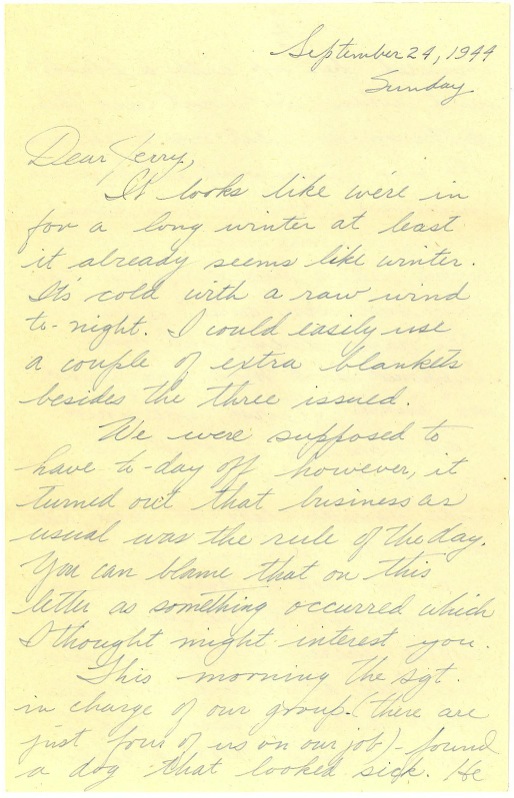 September 24, 1944
Sunday
Dear Jerry,
It looks like we're in
for a long winter at least
it already seems like winter.
It's cold with a raw wind
to-night. I could easily use
a couple of extra blankets
besides the three issued.
We were supposed to
have to-day off however, it
turned out that business as
usual was the rule of the day.
You can blame that on this
letter as something occurred which
I thought might interest you.
This morning the sgt.
in charge of our group-(there are
just four of us on our job)-found
a dog that looked sick. He